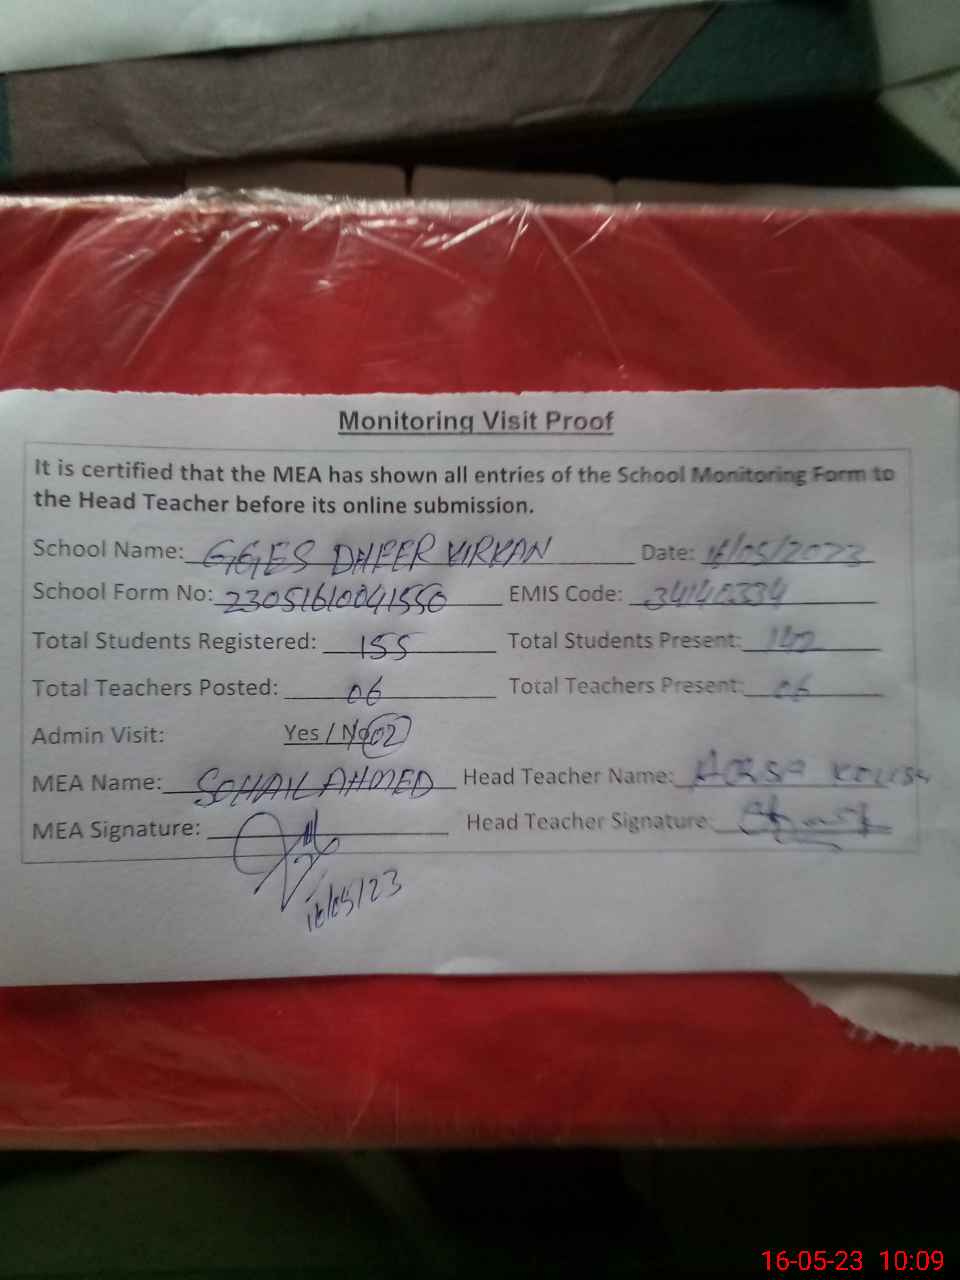 Monitoring Visit Proof
It is certified that the MEA has shown all entries of the School Monitoring Form to
the Head Teacher before its online submission.
School Name: GGES DHEER KIRKAN Date: 16/05/2023
School Form No: 23051610041550 EMIS Code: 34140334
Total Students Registered: 155 Total Students Present:
Total Teachers Posted: 06 Total Teachers Present: 06
Admin Visit: Yes / No 02
MEA Name: SOHAIL AHMED Head Teacher Name:
MEA Signature: Head Teacher Signature:
16/05/23
16-05-23 10:09